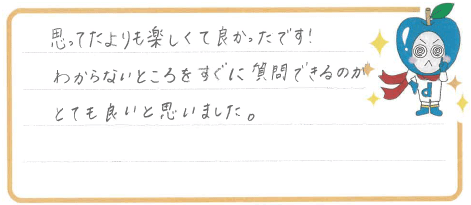 思ってたよりも楽しくて良かったです!
わからないところをすぐに質問できるのが
とても良いと思いました。
d